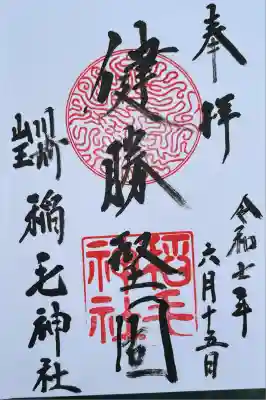 奉拝
令和七年
六月十五日
健勝堅固
稲毛
神社
川崎
山王
稲毛神社